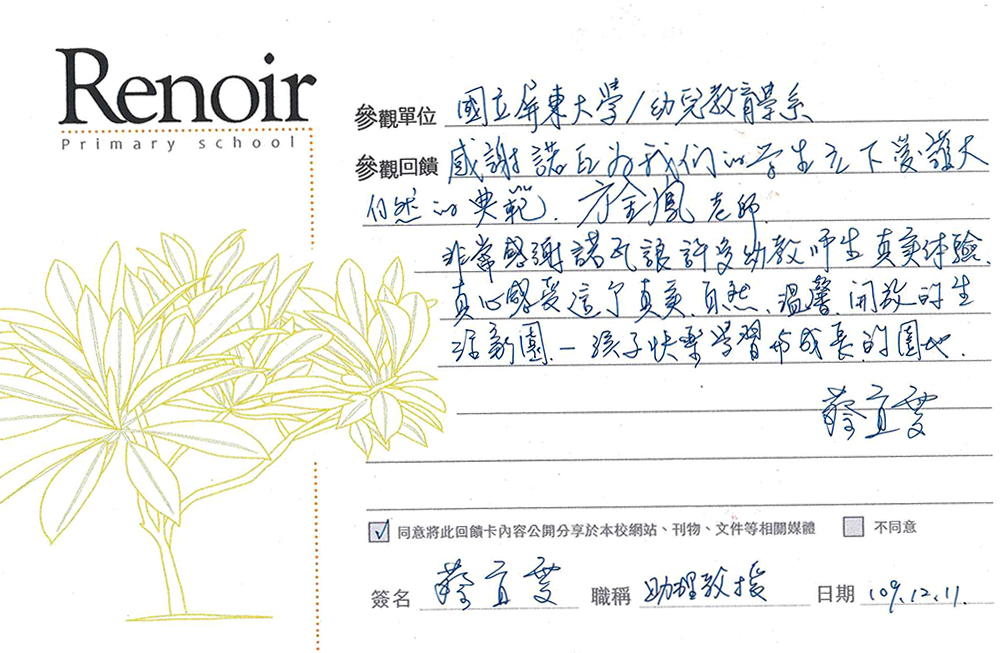 Renoir
Primary school
參觀單位 國立屏東大學/幼兒教育學系
參觀回饋 感謝諾瓦为我们的学生立下愛護大
自然的典範. 方金鳳老師.
非常感謝諾瓦 許多幼教师生真美体驗.
真心感受這个真美、自然、溫馨、開放的生
活新園. 一 孩子快樂學習与成長的園地.
蔡宜雯
☑ 同意將此回饋卡內容公開分享於本校網站、刊物、文件等相關媒體 ☐ 不同意
簽名 蔡宜雯 職稱 助理教授 日期 109.12.11.